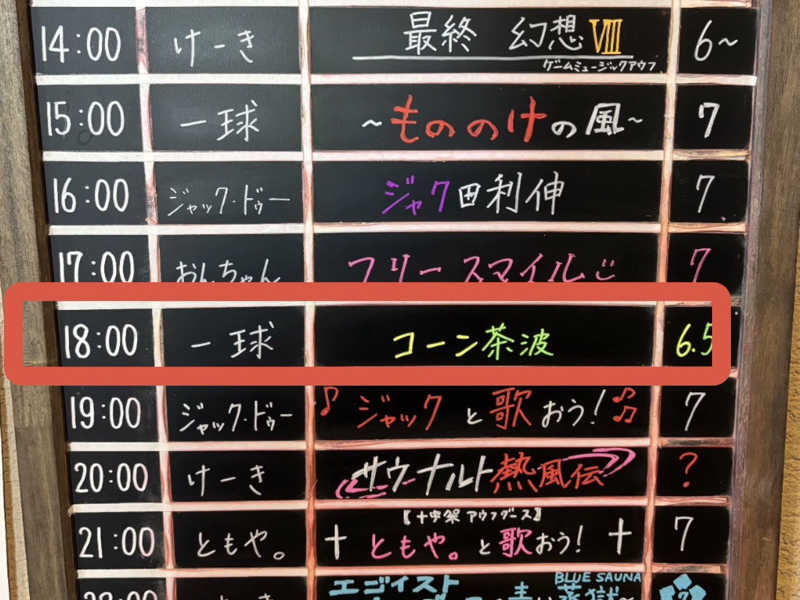 14:00 けーき 最終 幻想Ⅷ 6~
ゲームミュージックアウフ
15:00 一球 ~もののけの風~ 7
16:00 ジャック・ドゥー ジャク田利伸 7
17:00 おんちゃん フリースマイル 7
18:00 一球 コーン茶波 6.5
19:00 ジャック・ドゥー ♪ジャックと歌おう!♫ 7
20:00 けーき サウナルト熱風伝 ?
【十字架 アウフグース】
21:00 ともや。 †ともや。と歌おう!† 7
BLUE SAUNA
エゴイスト